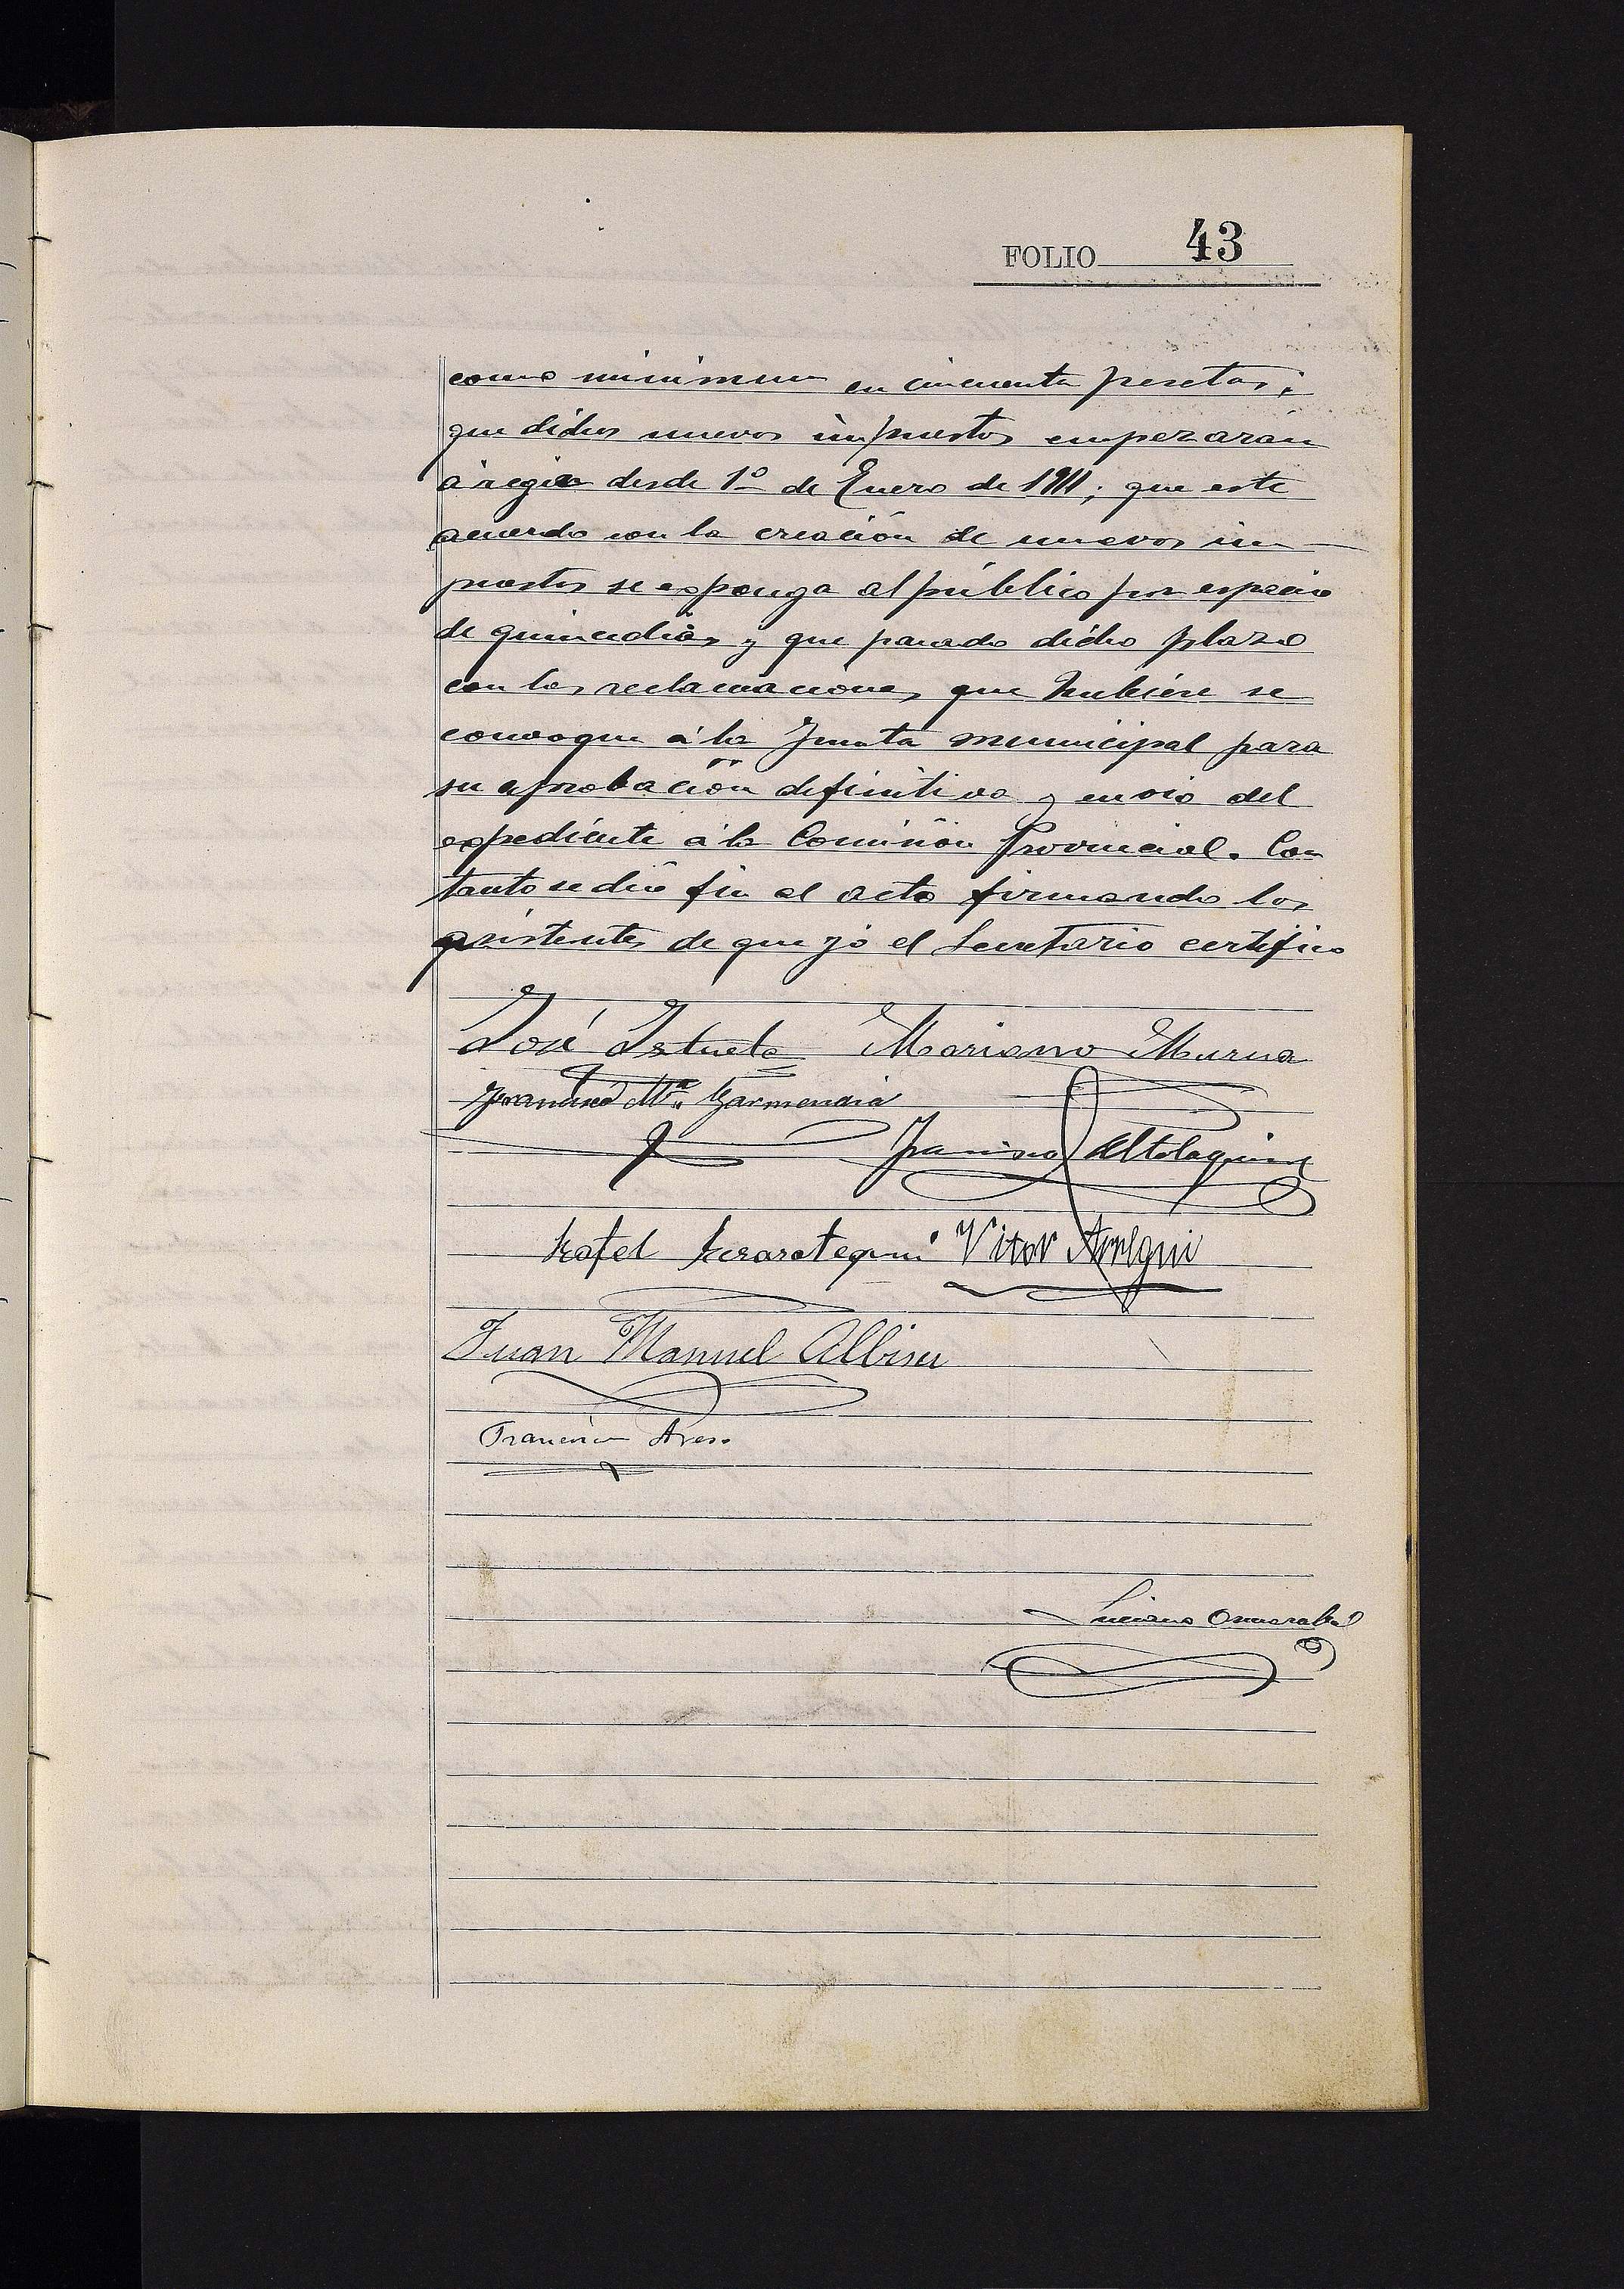 FOLIO 43
como minimum en cincuenta pesetas;
que dichos nuevos impuestos empezarán
á regir desde 1º de Enero de 1911; que este
acuerdo con la creación de nuevos im-
puestos se exponga al público por espacio
de quince dias y que pasado dicho plazo
con las reclamaciones que hubiere se
convoque á la Junta municipal para
su aprobación definitiva y envio del
expediente á la Comisión Provincial. Con
tanto se dió fin al acto firmando los
asistentes de que yo el Secretario certifico
José Istueta Mariano Murua
Francisco Mª Garmendia
Francisco Altolaguirre
Rafael Vitor Arregui
Juan Manuel Albisu
Francisco
Luciano